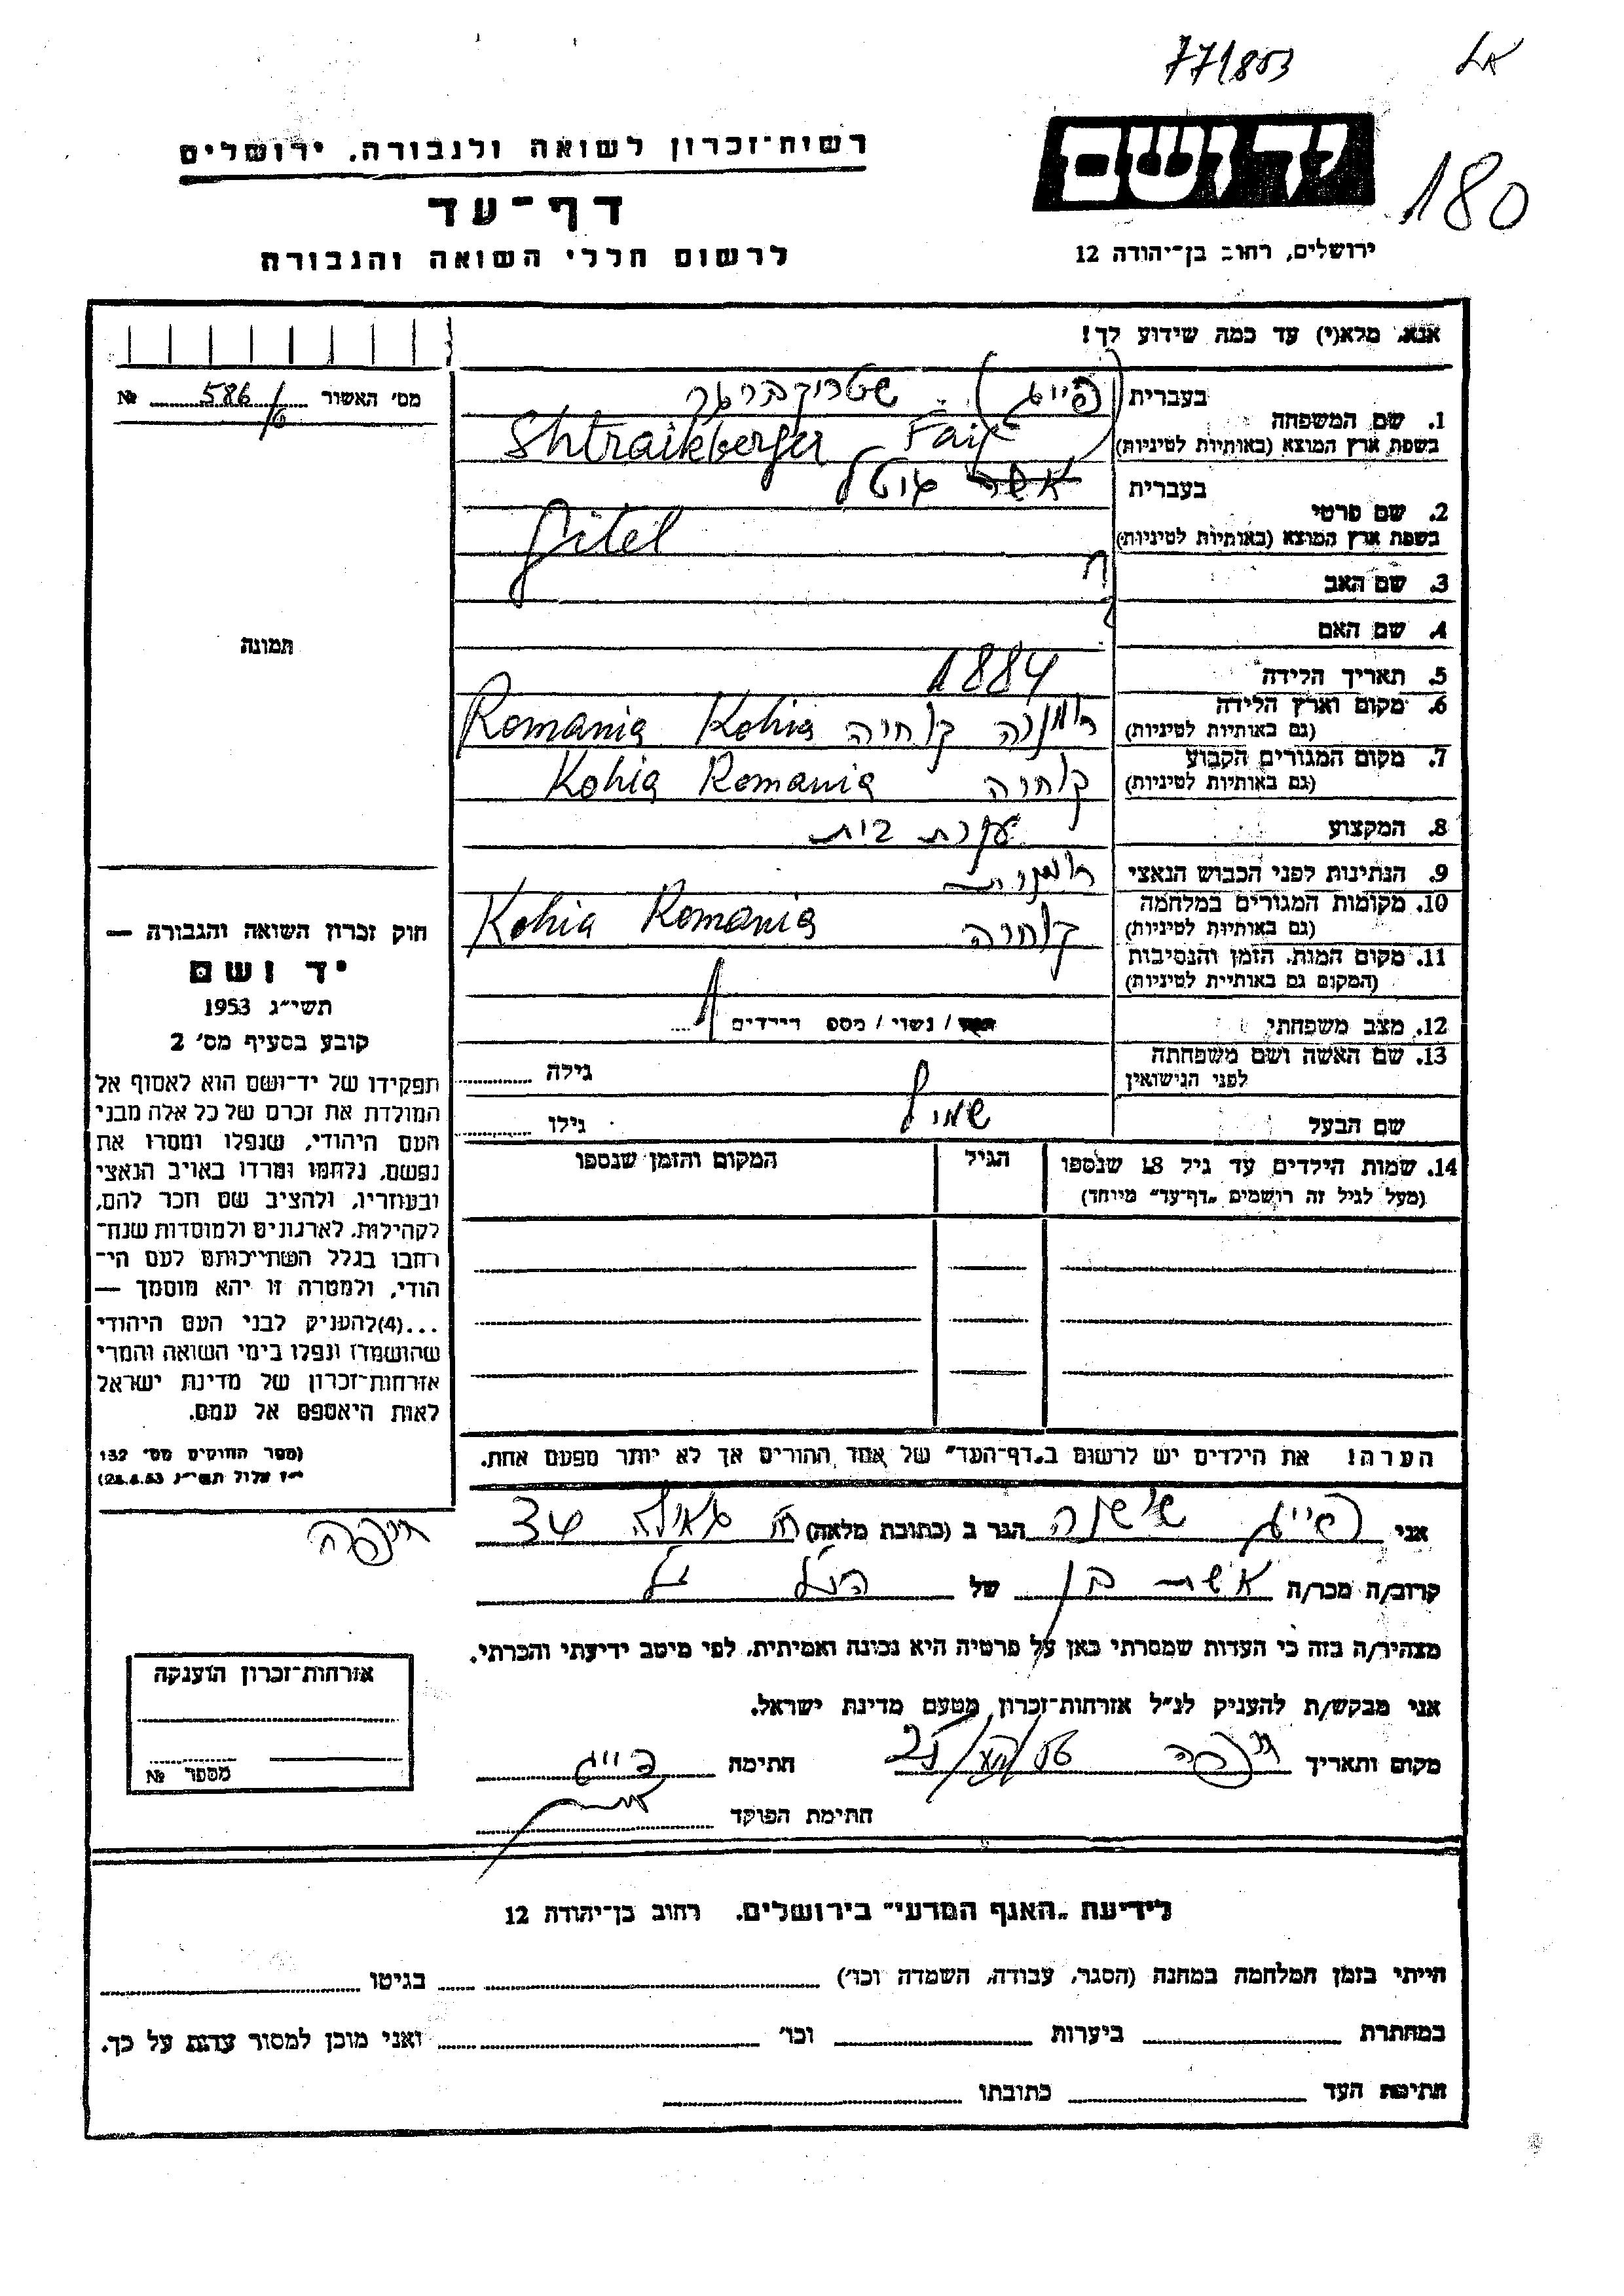 771853
יד ושם
180
ירושלים, רחוב בן־יהודה 12
רשות־זכרון לשואה ולגבורה, ירושלים
דף־עד
לרשום חללי השואה והגבורה
אנא, מלא(י) עד כמה שידוע לך!
מס׳ האשור 586/ №
1. שם המשפחה בעברית (פייג) שטרייקברגר
בשפת ארץ המוצא (באותיות לטיניות) Shtraikberger Faig
2. שם פרטי בעברית אשר גיטל
בשפת ארץ המוצא (באותיות לטיניות) Gitel
3. שם האב
4. שם האם
תמונה
5. תאריך הלידה 1884
6. מקום וארץ הלידה
(גם באותיות לטיניות) רומניה קוחיה Romania Kohia
7. מקום המגורים הקבוע
(גם באותיות לטיניות) קוחיה Kohia Romania
8. המקצוע עקרת בית
9. הנתינות לפני הכבוש הנאצי רומנית
10. מקומות המגורים במלחמה
(גם באותיות לטיניות) קוחיה Kohia Romania
11. מקום המות, הזמן והנסיבות
(המקום גם באותיית לטיניות)
12. מצב משפחתי רווק / נשוי / מספר הילדים 1
13. שם האשה ושם משפחתה
לפני הנישואין
גילה
שם הבעל שמיל גילו
14. שמות הילדים עד גיל 18 שנספו
(מעל לגיל זה רושמים „דף־עד״ מיוחד)
הגיל
המקום והזמן שנספו
חוק זכרון השואה והגבורה —
יד ושם
תשי״ג 1953
קובע בסעיף מס׳ 2
תפקידו של יד־ושם הוא לאסוף אל
המולדת את זכרם של כל אלה מבני
העם היהודי, שנפלו ומסרו את
נפשם, נלחמו ומרדו באויב הנאצי
ובעוזריו, ולהציב שם וזכר להם,
לקהילות, לארגונים ולמוסדות שנח־
רחבו בגלל השתייכותם לעם הי־
הודי, ולמטרה זו יהא מוסמך —
...(4)להעניק לבני העם היהודי
שהושמדו ונפלו בימי השואה והמרי
אזרחות־זכרון של מדינת ישראל
לאות היאספם אל עמם.
(ספר החוקים מס׳ 132
י״ז אלול תשי״ג 28.8.53)
הערה! את הילדים יש לרשום ב„דף־העד״ של אחד ההורים אך לא יותר מפעם אחת.
אני פייג שושנה הגר ב (כתובת מלאה) רח גאולה 34 חיפה
קרוב/ה מכר/ה אשת בן של הנ״ל
מצהיר/ה בזה כי העדות שמסרתי כאן על פרטיה היא נכונה ואמיתית, לפי מיטב ידיעתי והכרתי.
אני מבקש/ת להעניק לנ״ל אזרחות־זכרון מטעם מדינת ישראל.
מקום ותאריך חיפה חתימה פייג
חתימת הפוקד
אזרחות־זכרון הוענקה
מספר №
לידיעת „האגף המדעי״ בירושלים, רחוב בן־יהודה 12
הייתי בזמן המלחמה במחנה (הסגר, עבודה, השמדה וכו׳) בגיטו
במחתרת ביערות וכו׳ ואני מוכן למסור עדות על כך.
חתימת העד כתובתו